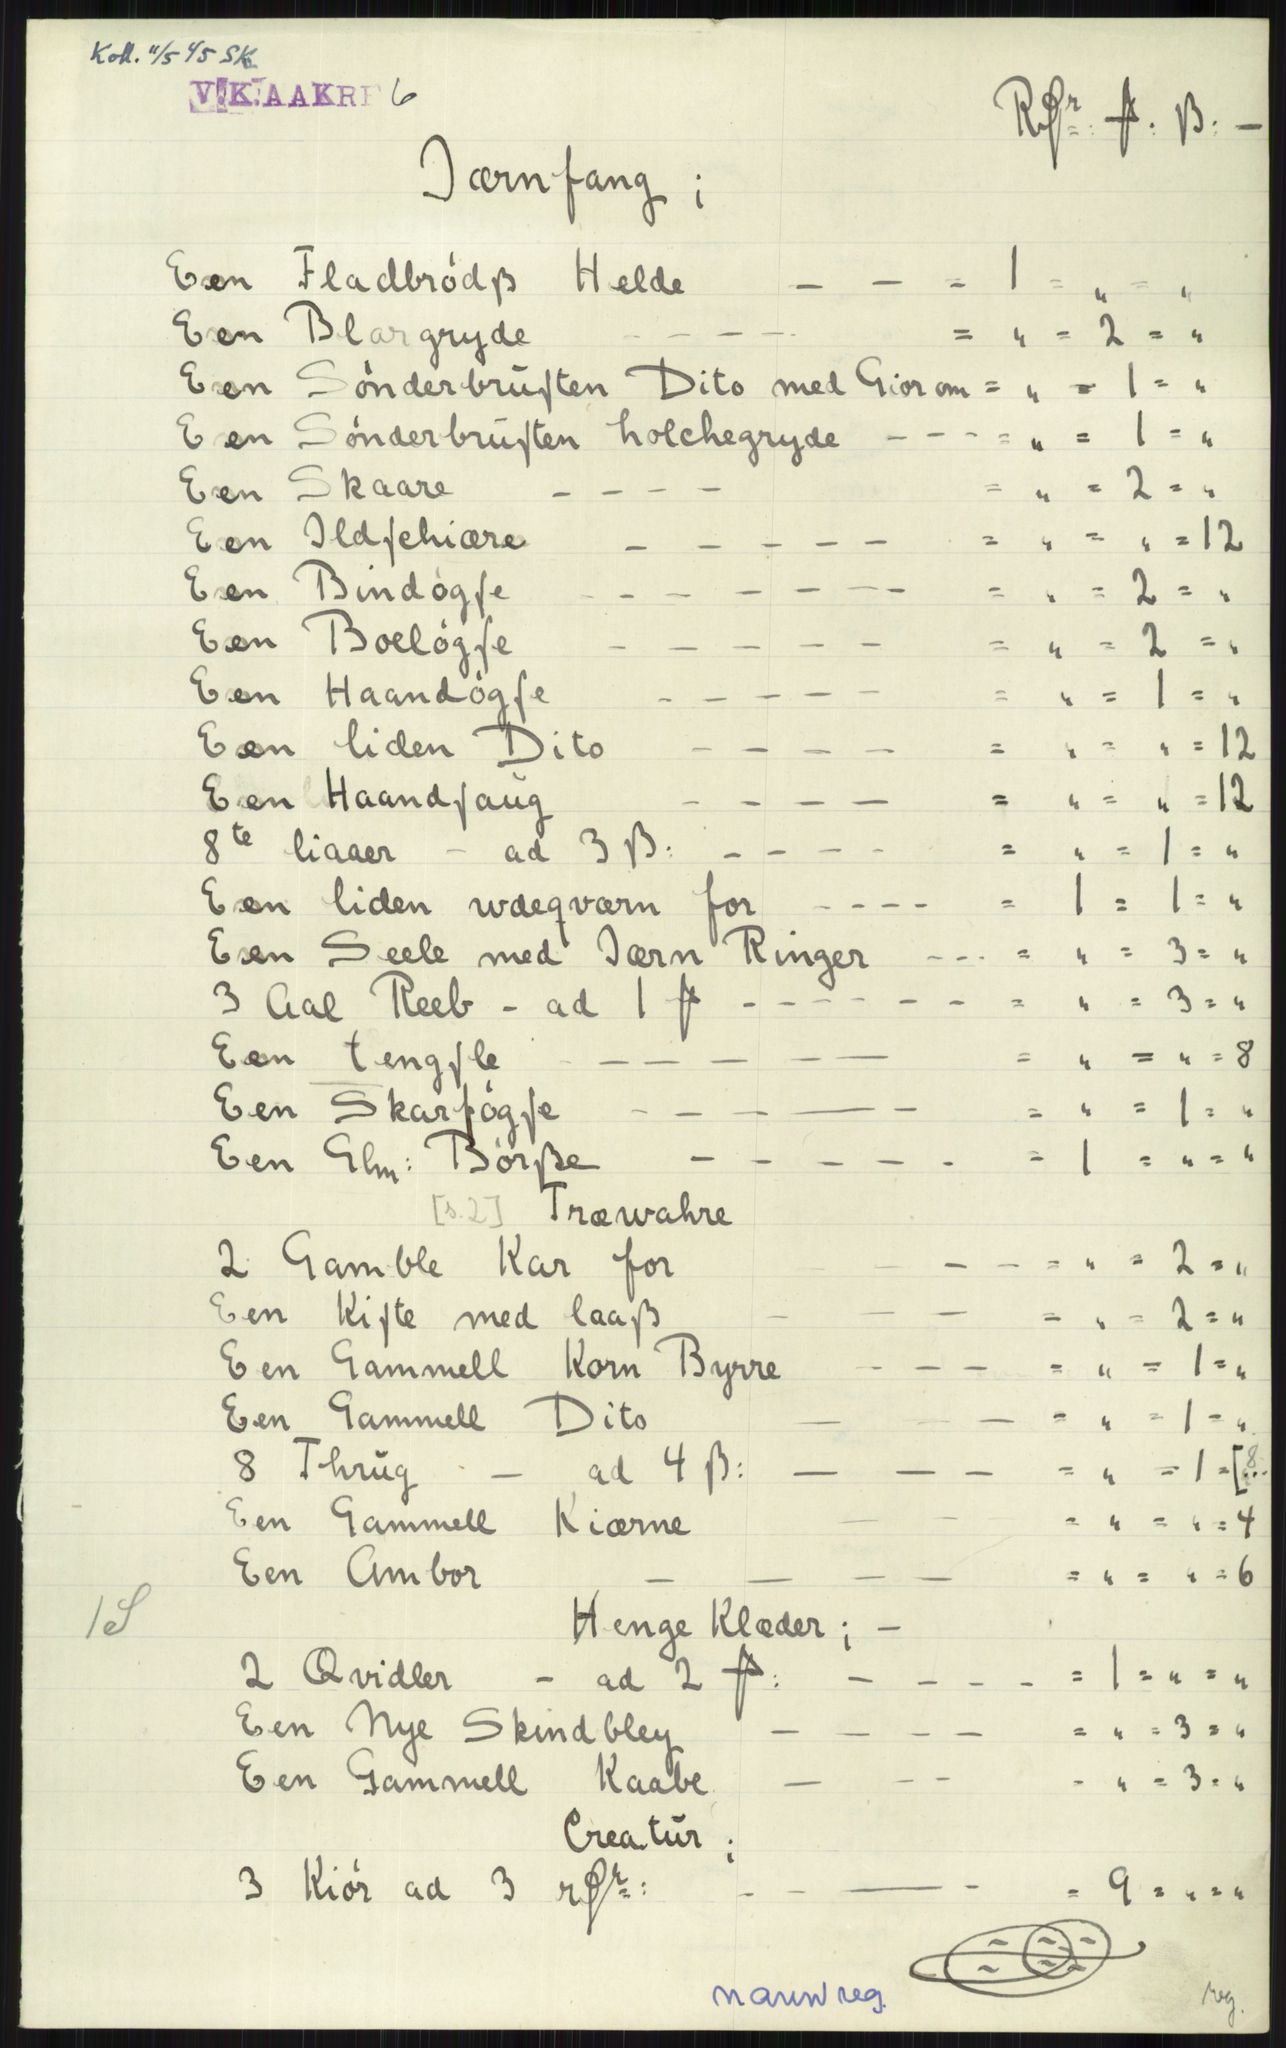 Koll. 11/5 45 SK
V.K. AAKRE 6
Rdr: ₰: ß: —
Jærnfang ;
Een Fladbródß Helde — — = 1 = „ = „
Een Blargryde - - - - = „ = 2 = „
Een Sónderbrúſten Dito med Giorom = „ = 1 = „
Een Sónderbrúſten holchegryde - - - = „ = 1 = „
Een Skaare - - - - = „ = 2 = „
Een Jldſchiære - - - - - = „ = „ = 12
Een Bindógſe - - - - - - - = „ = 2 = „
Een Boelógſe - - - - - = „ = 2 = „
Een Haandógſe - - - - - = „ = 1 = „
Een liden Dito - - - - = „ = „ = 12
Een Haandſaúg - - - - = „ = „ = 12
8te liaaer - ad 3 ß: - - - - = „ = 1 = „
Een liden wdeqværn for - - - - = 1 = 1 = „
Een Seele med Jærn Ringer - - - = „ = 3 = „
3 Aal Reeb - ad 1 ₰ - - - - - - - = „ = 3 = „
Een tengſle - - - - - - = „ = „ = 8
Een Skarfógſe - - - — - = „ = 1 = „
Een Glm: Bórße - - - - - - = 1 = „ = „
[s.2] Træwahre
2 Gamble Kar for - - - - = „ = 2 = „
Een Kiſte med laaß - - - - = „ = 2 = „
Een Gammell Korn Byrre - - - = „ = 1 = „
Een Gammell Dito — — — = „ = 1 = „
8 Thrúg - — ad 4 ß: — — — = „ = 1 = [8...
Een Gammell Kiærne — — = „ = „ = 4
Een Ambor — — — — = „ = „ = 6
1S
Henge Klæder ; —
2 Qvidler - ad 2 ₰: — - - - - = 1 = „ = „
Een Nye Skindbley — - - - = „ = 3 = „
Een Gammell Kaabe — - - - „ = 3 = „
Creatúr ;
3 Kiór ad 3 rdr: - - — - = 9 = „ = „
navnreg.
reg.